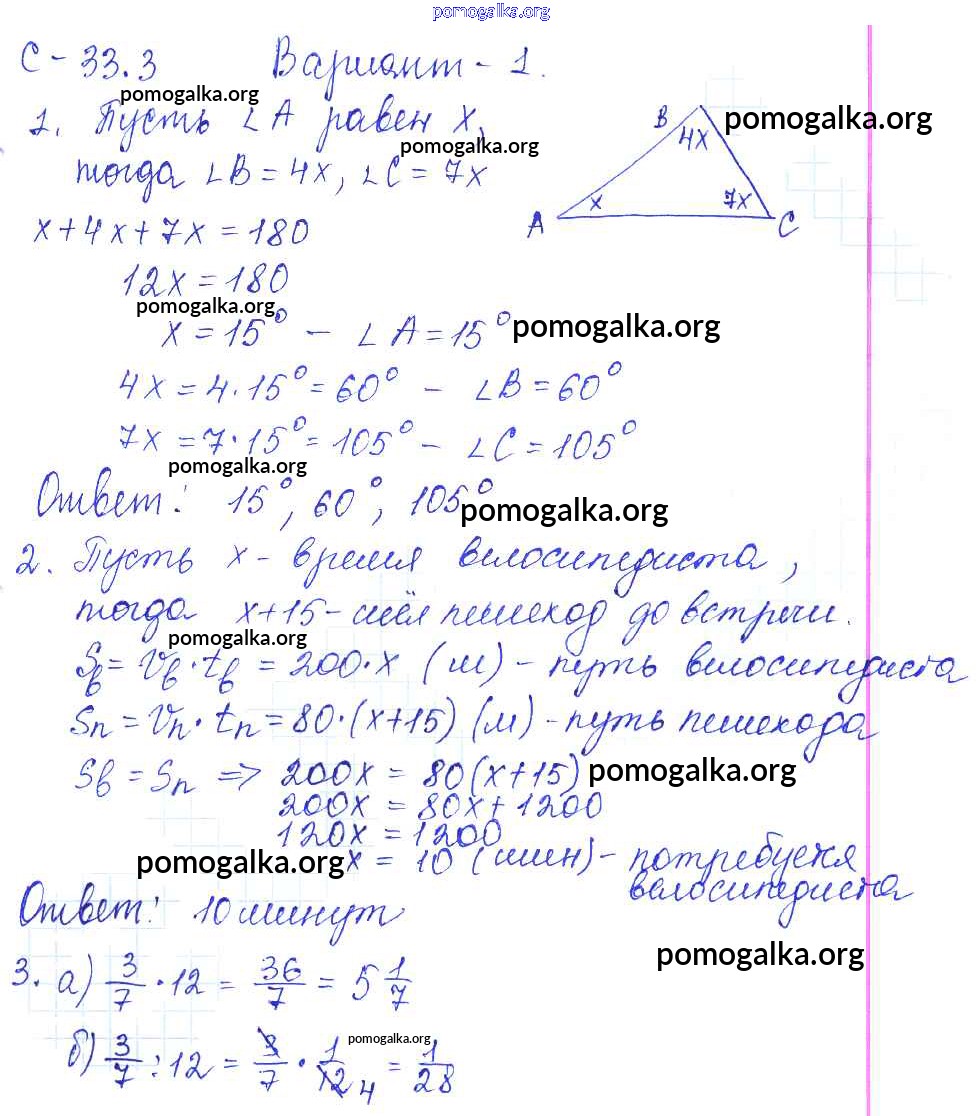 pomogalka.org
С-33.3 Вариант-1.
pomogalka.org
1. Пусть ∠A равен x, pomogalka.org
pomogalka.org
тогда ∠B = 4x, ∠C = 7x
B 4x
x 7x
A C
x+4x+7x = 180
12x = 180
pomogalka.org
x = 15° – ∠A = 15° pomogalka.org
4x = 4·15° = 60° – ∠B = 60°
7x = 7·15° = 105° – ∠C = 105°
pomogalka.org
Ответ: 15°, 60°, 105° pomogalka.org
2. Пусть x - время велосипедиста,
тогда x+15 - шёл пешеход до встречи.
pomogalka.org
Sв = Vв·tв = 200·x (м) - путь велосипедиста
Sп = Vп·tп = 80·(x+15) (м) - путь пешехода
Sв = Sп => 200x = 80(x+15) pomogalka.org
200x = 80x + 1200
120x = 1200
pomogalka.org x = 10 (мин) - потребуется
велосипедиста
Ответ: 10 минут
pomogalka.org
3. а) 3/7 · 12 = 36/7 = 5 1/7
pomogalka.org
б) 3/7 : 12 = 3/7 · 1/12 4 = 1/28